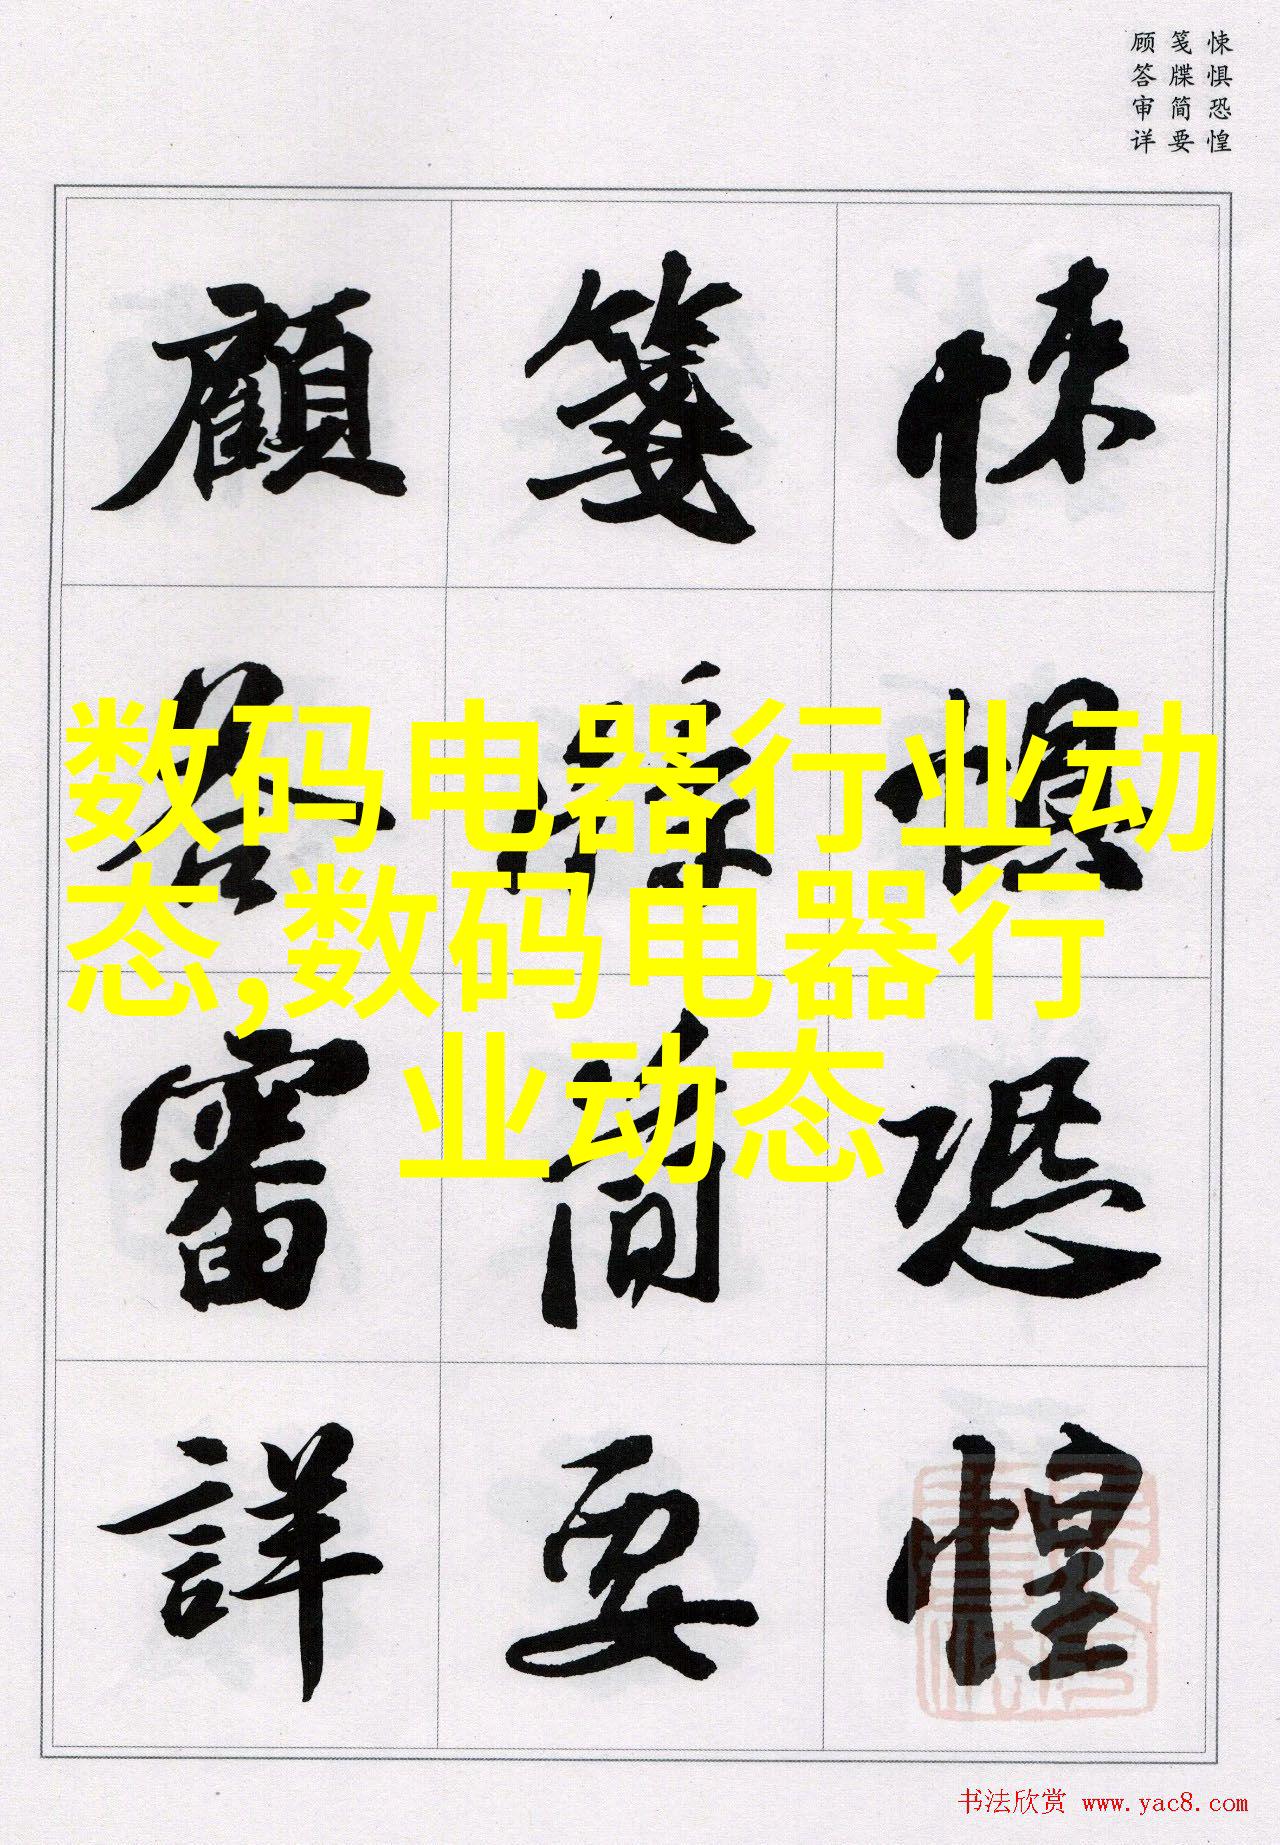 悚惧恐惶
笺牒简要
顾答审详
悚懼恐惶
箋牒简要
顧答審詳
数码电器行业动
态,数码电器行
业动态
书法欣赏 www.yac8.com